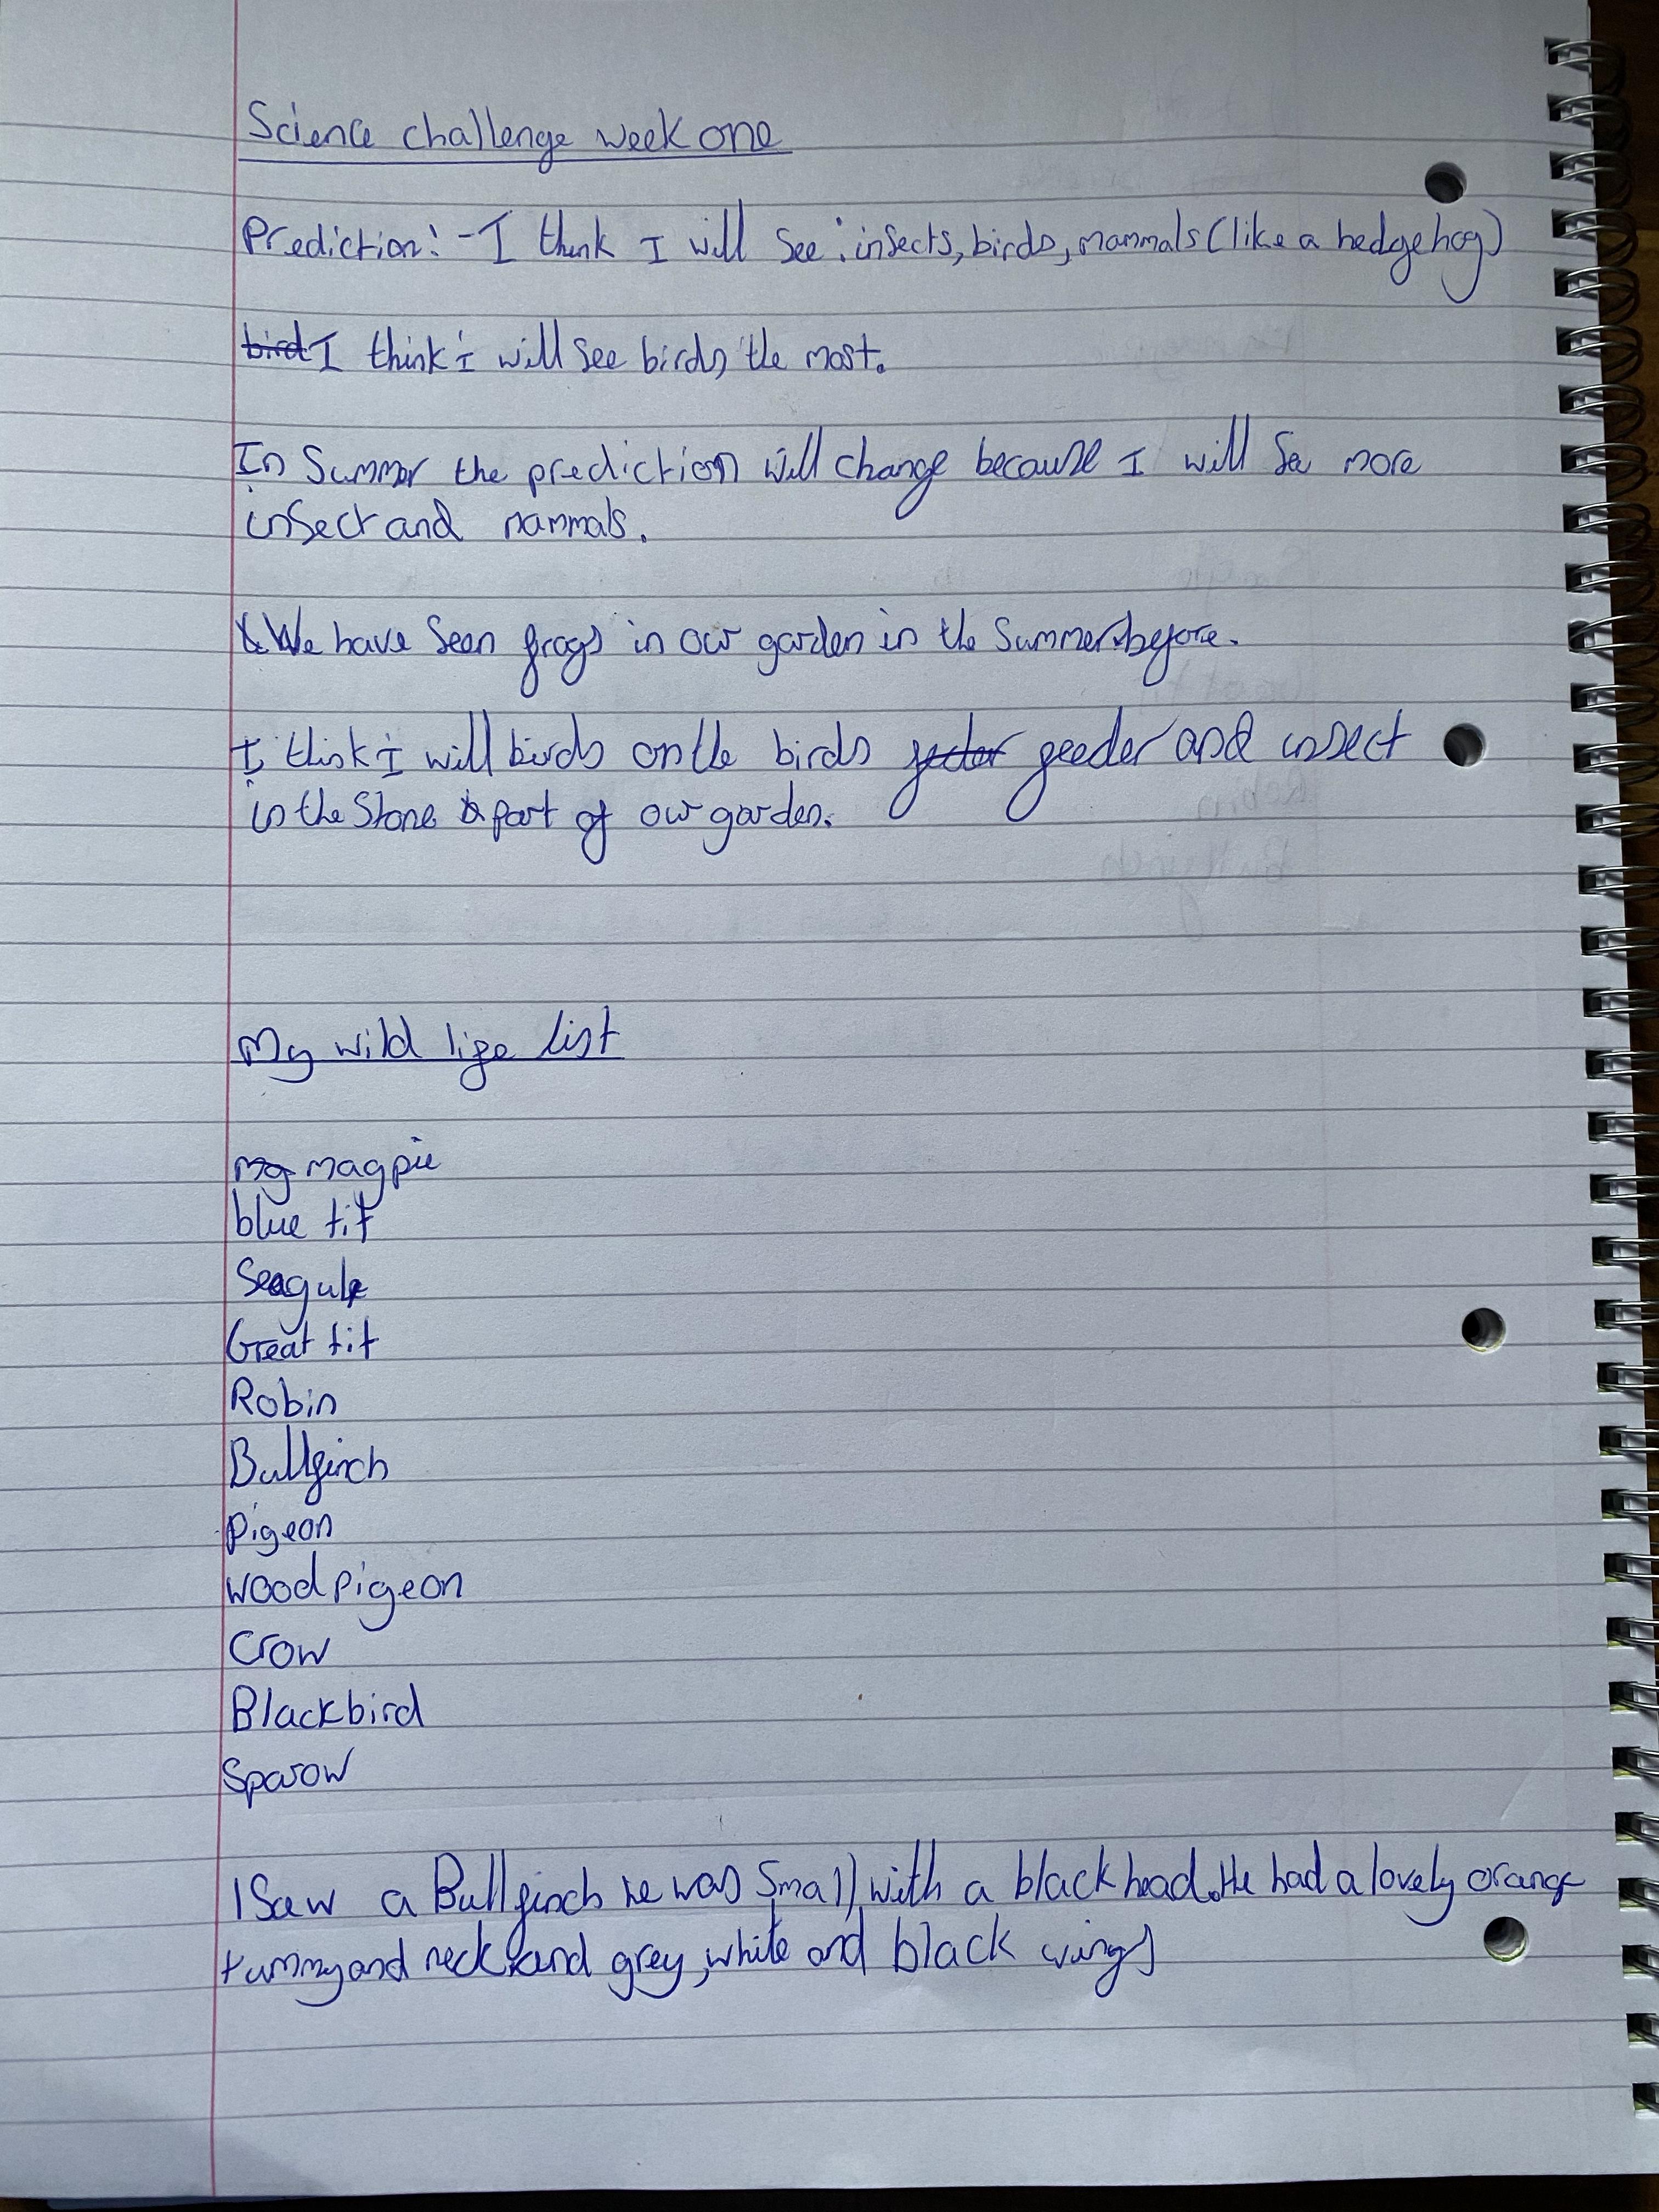 Science challenge week one
Prediction: - I think I will see : insects, birds, mammals (like a hedgehog)
bird I think i will see birds the most.
In Summer the prediction will change because I will see more
insect and mammals.
We have seen frogs in our garden in the summer before.
I think i will birds on the birds feeder and insect
in the stone part of our garden.
My wild life list
mg magpie
blue tit
Seagule
Great tit
Robin
Bullfinch
pigeon
wood pigeon
Crow
Blackbird
Sparow
I Saw a Bullfinch he was small, with a black head. He had a lovely orange
tummy and neck and grey, white and black wings